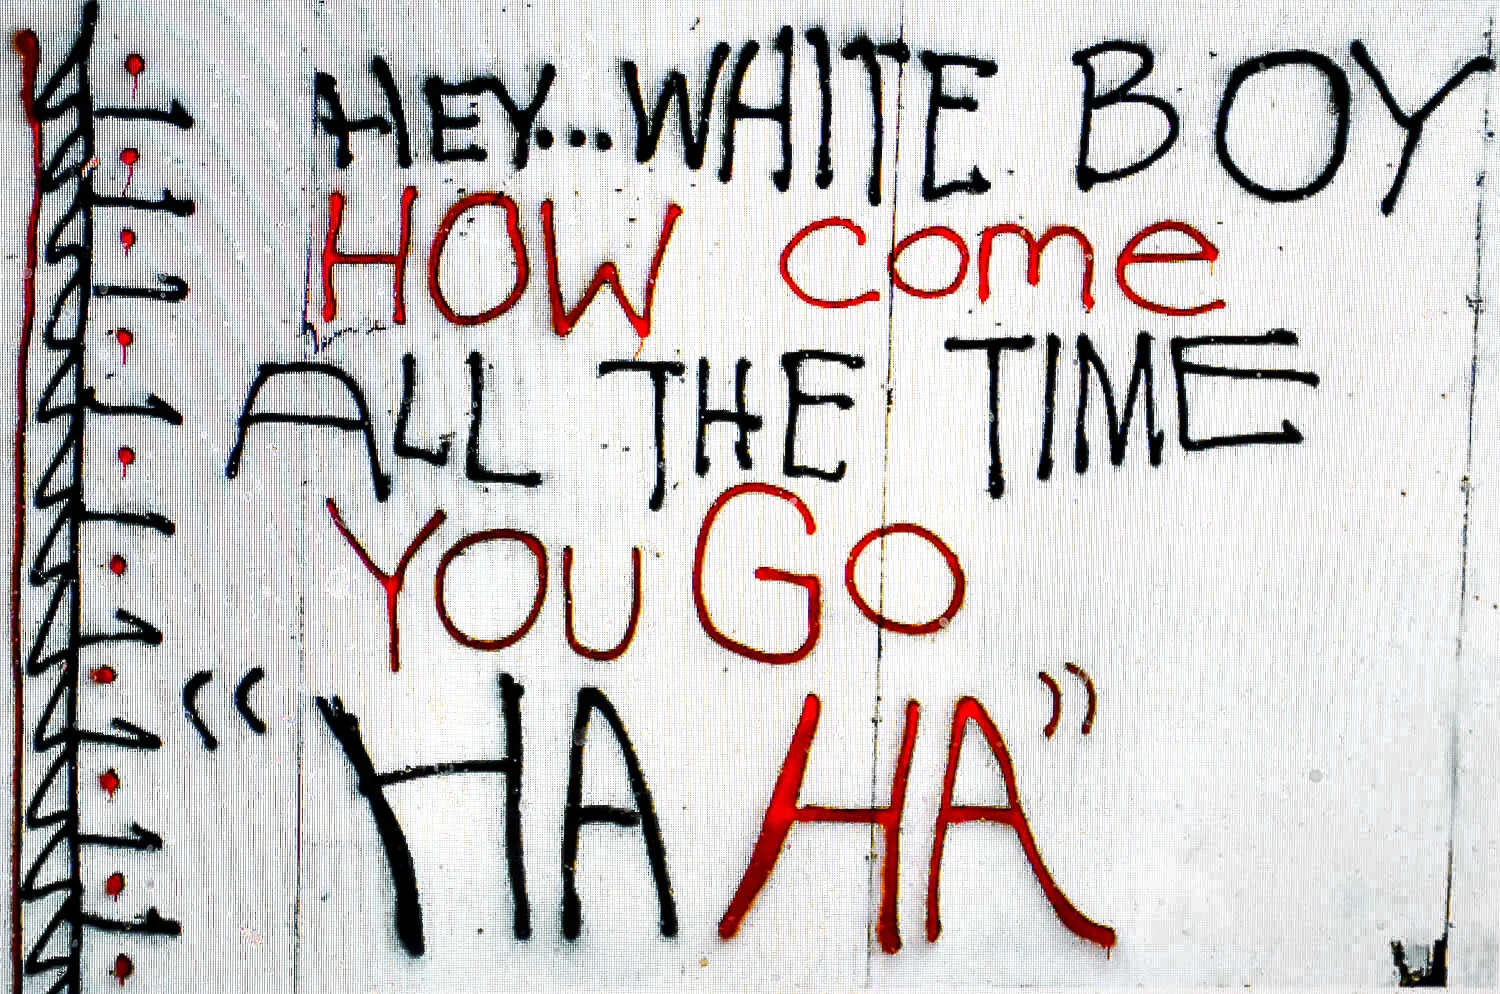 HEY...WHITE BOY
HOW come
ALL THE TIME
YOU GO
“HA HA”